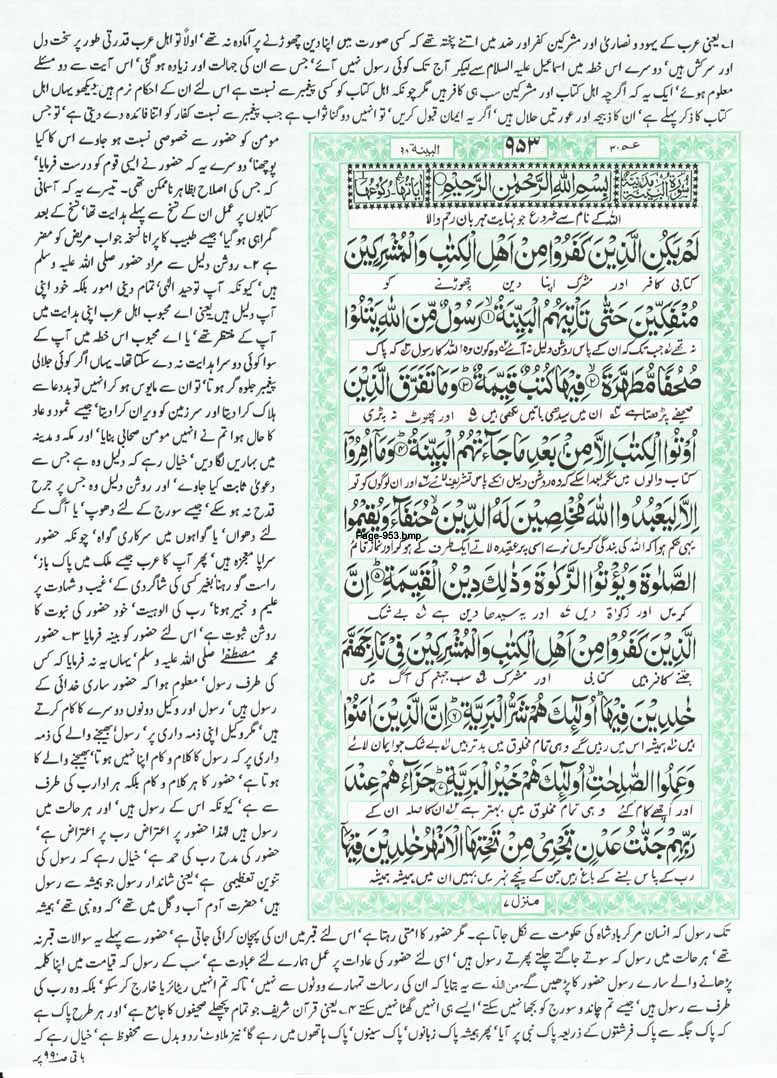 ۱؎ یعنی عرب کے یہود و نصاریٰ اور مشرکین کفر اور ضد میں اتنے پختہ تھے کہ کسی صورت میں اپنا دین چھوڑنے پر آمادہ نہ تھے' اولاً تو اہل عرب قدرتی طور پر سخت دل
اور سرکش ہیں' دوسرے اس خطہ میں اسماعیل علیہ السلام سے لیکر آج تک کوئی رسول نہیں آئے' جس سے ان کی جہالت اور زیادہ ہو گئی' اس آیت سے دو مسئلے
معلوم ہوئے' ایک یہ کہ اگرچہ اہل کتاب اور مشرکین سب ہی کافر ہیں مگر چونکہ اہل کتاب کو کسی پیغمبر سے نسبت ہے اس لئے ان کے احکام نرم ہیں' دیکھو یہاں اہل
کتاب کا ذکر پہلے ہے' ان کا ذبیحہ اور عورتیں حلال ہیں' اگر یہ ایمان قبول کریں' تو انہیں دوگنا ثواب ہے جب پیغمبر سے نسبت کفار کو اتنا فائدہ دے دیتی ہے' تو جس
مومن کو حضور سے خصوصی نسبت ہو جاوے اس کا کیا
پوچھنا' دوسرے یہ کہ حضور نے ایسی قوم کو درست فرمایا'
کہ جس کی اصلاح بظاہر ناممکن تھی۔ تیسرے یہ کہ آسمانی
کتابوں پر عمل ان کے نسخ سے پہلے ہدایت تھا' نسخ کے بعد
گمراہی ہو گیا' جیسے طبیب کا پرانا نسخہ جواب مریض کو مضر
ہے ۲؎ روشن دلیل سے مراد حضور صلی اللہ علیہ وسلم
ہیں' کیونکہ آپ توحید الٰہی' تمام دینی امور بلکہ خود اپنی
آپ دلیل ہیں یعنی اے محبوب اہل عرب اپنی ہدایت میں
آپ کے منتظر تھے' یا اے محبوب اس خطہ میں آپ کے
سوا کوئی دوسرا ہدایت نہ دے سکتا تھا۔ یہاں اگر کوئی جلالی
پیغمبر جلوہ گر ہوتا' تو ان سے مایوس ہو کر انہیں تو بددعا سے
ہلاک کرا دیتا اور سرزمین کو ویران کرا دیتا' جیسے ثمود و عاد
کا حال ہوا تم نے انہیں مومن صحابی بنایا' اور مکہ و مدینہ
میں بہاریں لگا دیں' خیال رہے کہ دلیل وہ ہے جس سے
دعویٰ ثابت کیا جاوے' اور روشن دلیل وہ جس پر جرح
قدح نہ ہو سکے' جیسے سورج کے لئے دھوپ' یا آگ کے
لئے دھواں' یا گواہوں میں سرکاری گواہ' چونکہ حضور
سراپا معجزہ ہیں' پھر آپ کا عرب جیسے ملک میں پاک باز'
راست گو رہنا بغیر کسی کی شاگردی کے' غیب و شہادت پر
علیم و خبیر ہونا' رب کی الوہیت' خود حضور کی نبوت کا
روشن ثبوت ہے' اس لئے حضور کو بینہ فرمایا ۳؎ حضور
محمد مصطفےٰ صلی اللہ علیہ وسلم' یہاں یہ نہ فرمایا کہ کس
کی طرف رسول' معلوم ہوا کہ حضور ساری خدائی کے
رسول ہیں' رسول اور وکیل دونوں دوسرے کا کام کرتے
ہیں' مگر وکیل اپنی ذمہ داری پر' رسول' بھیجنے والے کی ذمہ
داری پر کہ رسول کا کلام و کام اپنا نہیں ہوتا' بھیجنے والے کا
ہوتا ہے' حضور کا ہر کلام و کام بلکہ ہر ادا رب کی طرف
سے ہے' کیونکہ اس کے رسول ہیں' اور ہر حالت میں
رسول ہیں لہٰذا حضور پر اعتراض رب پر اعتراض ہے'
حضور کی مدح رب کی حمد ہے' خیال رہے کہ رسول کی
تنوین تعظیمی ہے' یعنی شاندار رسول جو ہمیشہ سے رسول
ہیں' حضرت آدم آب و گل میں تھے' کہ وہ نبی تھے' ہمیشہ
عمّ ۳۰
۹۵۳
البینة ۹۸
سُوْرَةُ الْبَيِّنَةِ مَدَنِيَّةٌ
بِسْمِ اللّٰهِ الرَّحْمٰنِ الرَّحِيْمِ
اٰيَاتُهَا ۸ رُكُوْعُهَا ۱
اللہ کے نام سے شروع جو نہایت مہربان رحم والا
لَمْ يَكُنِ الَّذِيْنَ كَفَرُوْا مِنْ اَهْلِ الْكِتٰبِ وَالْمُشْرِكِيْنَ
کتابی کافر اور مشرک اپنا دین چھوڑنے کو
مُنْفَكِّيْنَ حَتّٰى تَاْتِيَهُمُ الْبَيِّنَةُ ۙ۱ رَسُوْلٌ مِّنَ اللّٰهِ يَتْلُوْا
نہ تھے جب تک کہ ان کے پاس روشن دلیل نہ آئے وہ کون وہ اللہ کا رسول کہ پاک
صُحُفًا مُّطَهَّرَةً ۙ۲ فِيْهَا كُتُبٌ قَيِّمَةٌ ؕ۳ وَمَا تَفَرَّقَ الَّذِيْنَ
صحیفے پڑھتا ہے ان میں سیدھی باتیں لکھی ہیں اور پھوٹ نہ پڑی
اُوْتُوا الْكِتٰبَ اِلَّا مِنْۢ بَعْدِ مَا جَآءَتْهُمُ الْبَيِّنَةُ ؕ۴ وَمَاۤ اُمِرُوْۤا
کتاب والوں میں مگر بعد اسکے کہ وہ روشن دلیل انکے پاس تشریف لائے اور ان لوگوں کو تو
اِلَّا لِيَعْبُدُوا اللّٰهَ مُخْلِصِيْنَ لَهُ الدِّيْنَ ۙ حُنَفَآءَ وَيُقِيْمُوا
Page-953.bmp
یہی حکم ہوا کہ اللہ کی بندگی کریں نرے اسی پر عقیدہ لاتے ایک طرف کے ہو کر اور نماز قائم
الصَّلٰوةَ وَيُؤْتُوا الزَّكٰوةَ وَذٰلِكَ دِيْنُ الْقَيِّمَةِ ؕ۵ اِنَّ
کریں اور زکوٰة دیں اور یہ سیدھا دین ہے بے شک
الَّذِيْنَ كَفَرُوْا مِنْ اَهْلِ الْكِتٰبِ وَالْمُشْرِكِيْنَ فِيْ نَارِ جَهَنَّمَ
جتنے کافر ہیں کتابی اور مشرک سب جہنم کی آگ میں
خٰلِدِيْنَ فِيْهَا ؕ اُولٰٓئِكَ هُمْ شَرُّ الْبَرِيَّةِ ؕ۶ اِنَّ الَّذِيْنَ اٰمَنُوْا
ہیں ہمیشہ اس میں رہیں گے وہی تمام مخلوق میں بدتر ہیں بے شک جو ایمان لائے
وَعَمِلُوا الصّٰلِحٰتِ ۙ اُولٰٓئِكَ هُمْ خَيْرُ الْبَرِيَّةِ ؕ۷ جَزَآؤُهُمْ عِنْدَ
اور اچھے کام کئے وہی تمام مخلوق میں بہتر ہیں ان کا صلہ ان کے
رَبِّهِمْ جَنّٰتُ عَدْنٍ تَجْرِيْ مِنْ تَحْتِهَا الْاَنْهٰرُ خٰلِدِيْنَ فِيْهَاۤ
رب کے پاس بسنے کے باغ ہیں جن کے نیچے نہریں بہیں ان میں ہمیشہ ہمیشہ
منزل ۷
تک رسول کہ انسان مر کر بادشاہ کی حکومت سے نکل جاتا ہے۔ مگر حضور کا امتی رہتا ہے' اس لئے قبر میں ان کی پہچان کرائی جاتی ہے' حضور سے پہلے یہ سوالات قبر نہ
تھے' ہر حالت میں رسول کہ سوتے جاگتے چلتے پھرتے رسول ہیں' اسی لئے حضور کی عادات پر عمل ہمارے لئے عبادت ہے' سب کے رسول کہ قیامت میں اپنا کلمہ
پڑھانے والے سارے رسول حضور کا پڑھیں گے۔ من اللہ سے یہ بتایا کہ ان کی رسالت تمہارے ووٹوں سے نہیں' تاکہ تم انہیں ریٹائر یا خارج کر سکو' بلکہ وہ رب کی
طرف سے رسول ہیں' جیسے تم چاند و سورج کو بجھا نہیں سکتے' ایسے ہی انہیں گھٹا نہیں سکتے ۴؎ یعنی قرآن شریف جو تمام پچھلے صحیفوں کا جامع ہے' اور ہر طرح پاک ہے
کہ پاک جگہ سے پاک فرشتوں کے ذریعہ پاک نبی پر آیا' پھر ہمیشہ پاک زبانوں' پاک سینوں' پاک ہاتھوں میں رہے گا' نیز ملاوٹ' ردوبدل سے محفوظ ہے' خیال رہے کہ
باقی صہ ۹۹۰ پر